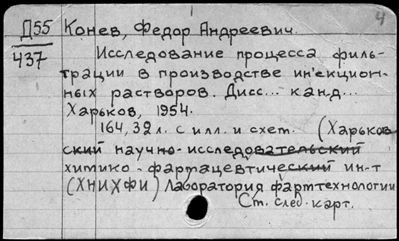 4
Д55 Конев, Федор Андреевич.
437 Исследование процесса филь-
трации в производстве ин'екцион-
ных растворов. Дисс... канд...
Харьков, 1954.
164, 32 л. с илл. и схем. (Харьков-
ский научно-исследовательский
химико-фармацевтический ин-т
(ХНИХФИ) Лаборатория фармтехнологии
Ст. след. карт.